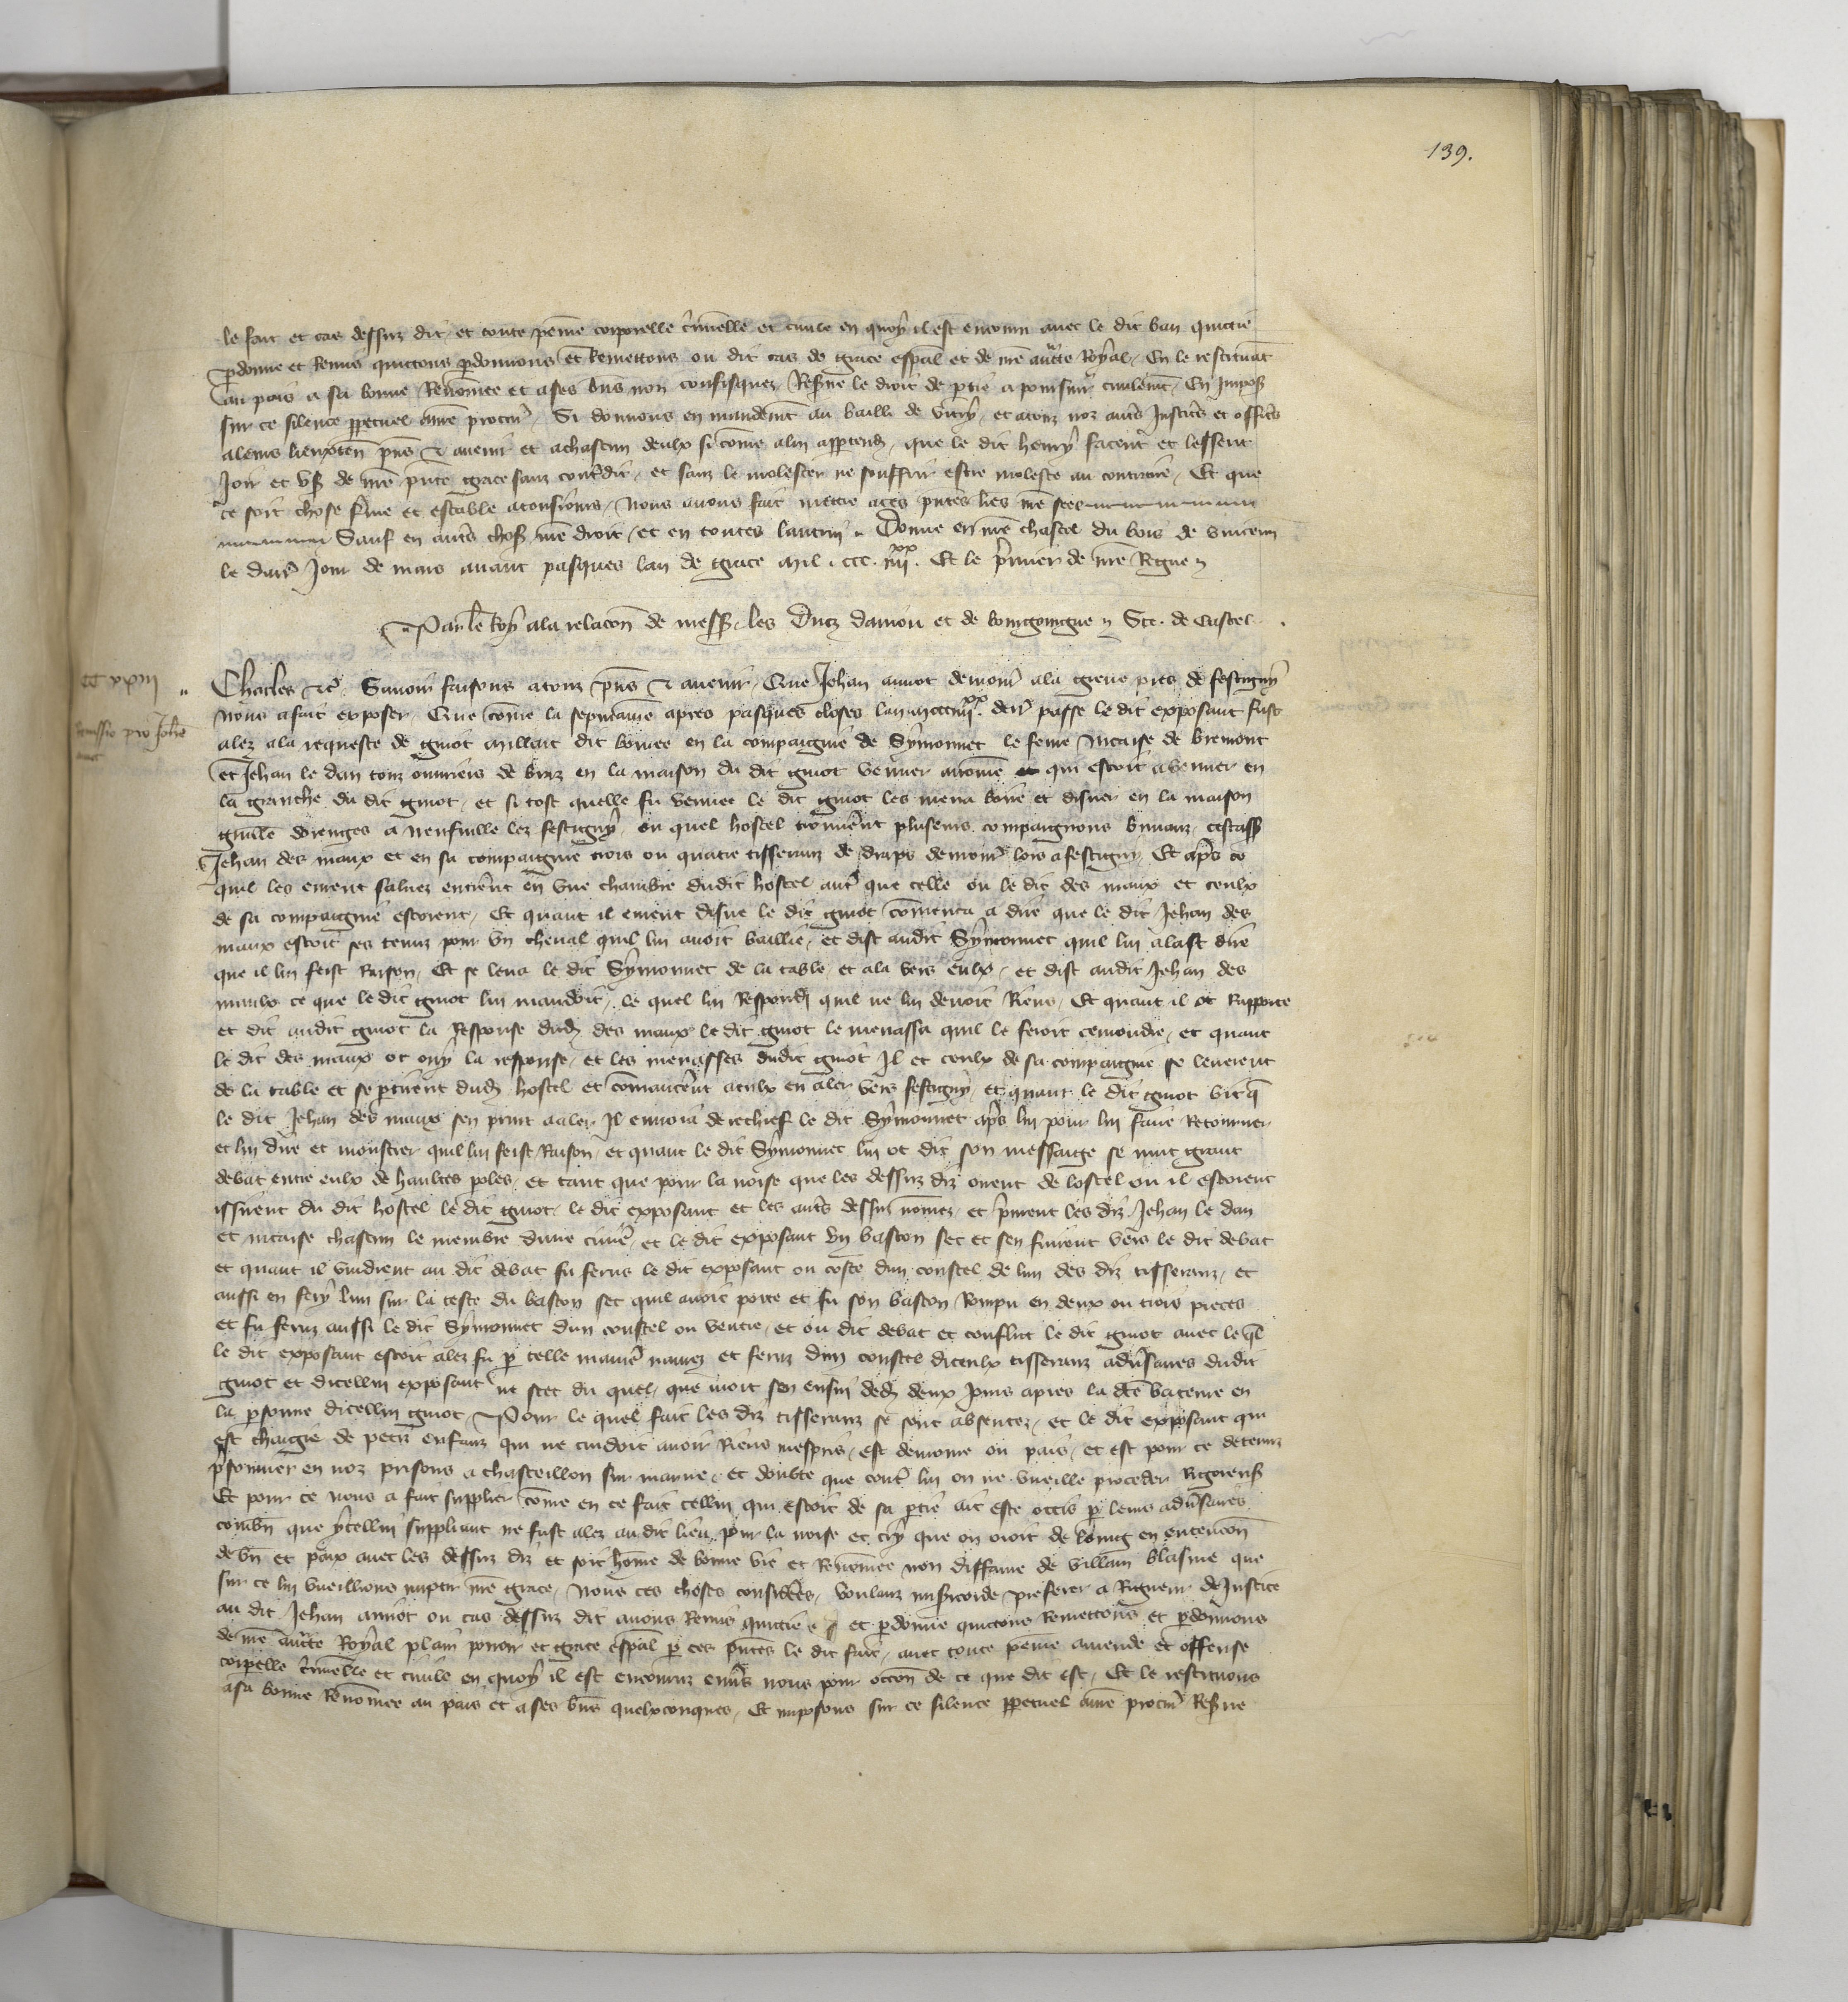 139.
le fait et cas dessuz dit et toute peine corporelle criminelle et civile en quoy il est encouru avec le dit ban quictié
pdonne et Remis quictons pdonnons Et Remettons ou dit cas de grace espal et de nre aucte Royal, En le restituāt
au pais a sa bonne Renōmee et a ses bns non confisquez Reserve le droit de ptie a poursuir civilemt, En Imposāt
sur ce silence ppetuel a nre procur. Si donnons en mandemt au bailli de Victry et a touz noz autes Justicres et officrs
a leurs lieuxten pns & avenir et a chascun deulx si cōme a lui apptendra, que le dit henry facent et lessent
Joir et usr de nre pnte grace sanz contredit, et sanz le molester ne souffrir estre moleste au contraire, Et que
ce soit chose ferme et estable a tousiours, Nous avons fait mettre a ces pntes lres nre seel
Sauf en autes choses nre droit, et en toutes lautruy Donne en nre chastel du bois de Vincenn
le darr Jour de mars avant pasques lan de grace mil. ccc. iiii xx. Et le premier de nre Regne
Par le Roy a la relacon de mess. les Ducz daniou et de bourgoingne Ste. de Castel.
CC xxiii
Remissio pro Johe
amiot
Charles &c. Savoir faisons a touz pns & avenir, Que Jehan amiot demour a la greve pres de festigny
Nous a fait exposer, Que cōme la sepmaine apres pasques closes lan mccciiii xx. derr passe le dit exposant fust
alez a la requeste de guiot millait dit bouree en la compaignie de Symonnet le feme Nicaise de bremont
et Jehan le dan touz ouvriers de braz en la maison du dit guiot venner avoine qui estoit a venner en
la granche du dit guiot, et si tost quelle fu vennee le dit guiot les mena boire et disner en la maison
guille dorenges a neufville lez festigny, ou quel hostel trouverent plusieurs compaignons buvanz, cestass
Jehan des maux et en sa compaignie trois ou quatre tisseranz de draps demour lors a festigny Et apres ce
quil les eurent saluez entrerent en une chambre dudit hostel aute que celle ou le dit des maux et ceulx
de sa compaignie estoient, Et quant il eurent disne le dit guiot cōmenca a dire que le dit Jehan des
maux estoit ses tenuz pour un cheval quil lui avoit baillie, et dist audit Symonnet quil lui alast dire
que il lui feist Raison, Et se leva le dit Symonnet de la table, et ala vers eulx, et dist audit Jehan des
maulx ce que le dit guiot lui mandoit, le quel lui Respondi quil ne lui devoit Riens, Et quant il ot Rapporte
et dit audit guiot la Response dudit des maux le dit guiot le menassa quil le feroit cemondre, et quant
le dit des maux ot ouy la response, et les menasses dudit guiot Il et ceulx de sa compaignie se leverent
de la table et se ptirent dudit hostel et cōmancerent a eulx en aler vers festigny, et quant le dit guiot vit q
le dit Jehan des maux sen print a aler Il envoia derechief le dit Symonnet apres lui pour lui faire Retourner
et lui dire et monstrer quil lui feist Raison, et quant le dit Symonnet lui ot dit son messaige se mut grant
debat entre eulx de haultes poles, et tant que pour la noise que les dessuz diz oirent de lostel ou il estoient
issirent du dit hostel le dit guiot, le dit exposant et les autes dessus nōmez, et prinrent les diz Jehan le dan
et nicaise chascun le membre dune civiere et le dit exposant un baston sec et sen furent vers le dit debat
et quant il vindrent au dit debat fu ferus le dit exposant ou coste dun coustel de lun des diz tisseranz, et
aussi en fery lun sur la teste du baston sec quil avoit porte et fu son baston Rompu en deux ou trois pieces
et fu feruz aussi le dit Symonnet dun coustel ou ventre, et ou dit debat et conflict le dit guiot avec le ql
le dit exposant estoit alez fu p telle maniere navrez et feruz dun coustel diceulx tisseranz adversaires dudit
guiot et dicellui exposant ne scet du quel, que mort sen ensui dedens deux Jours apres la dte bateure en
la psonne dicellui guiot, Pour le quel fait les diz tisseranz se sont absentez, et le dit exposant qui
est chargie de petiz enfanz qui ne cuidoit avoir Riens mespris, est demoure ou pais, et est pour ce detenuz
psonnier en noz prisons a chasteillon sur marne, et doubte que contre lui on ne vueille proceder Rigoreust
Et pour ce nous a fait supplier cōme en ce fait cellui qui estoit de sa ptie ait este occis p leurs adversaires
combn que ycellui suppliant ne fust alez au dit lieu, pour la noise et cry que on oioit de loing en entencon
de bn et paix avec les dessuz diz et soit hōme de bonne vie et Renōmee non diffame de villain blasme que
sur ce lui vueillions impartir nre grace, Nous ces choses considerees, voulanz misericorde preferer a Rigueur de Justice
au dit Jehan amiot ou cas dessuz dit avons Remis quictie et pdonne quictons Remettons et pdonnons
de nre aucte Royal plain povoir et grace espal p ces pntes le dit fait, avec toute peine amende et offense
corpelle criminelle et civile en quoy il est encouruz envers nous pour occon de ce que dit est, Et le restituons
a sa bonne Renōmee au pais et a ses bns quelxconques, Et imposons sur ce silence ppetuel a nre procur Reserve